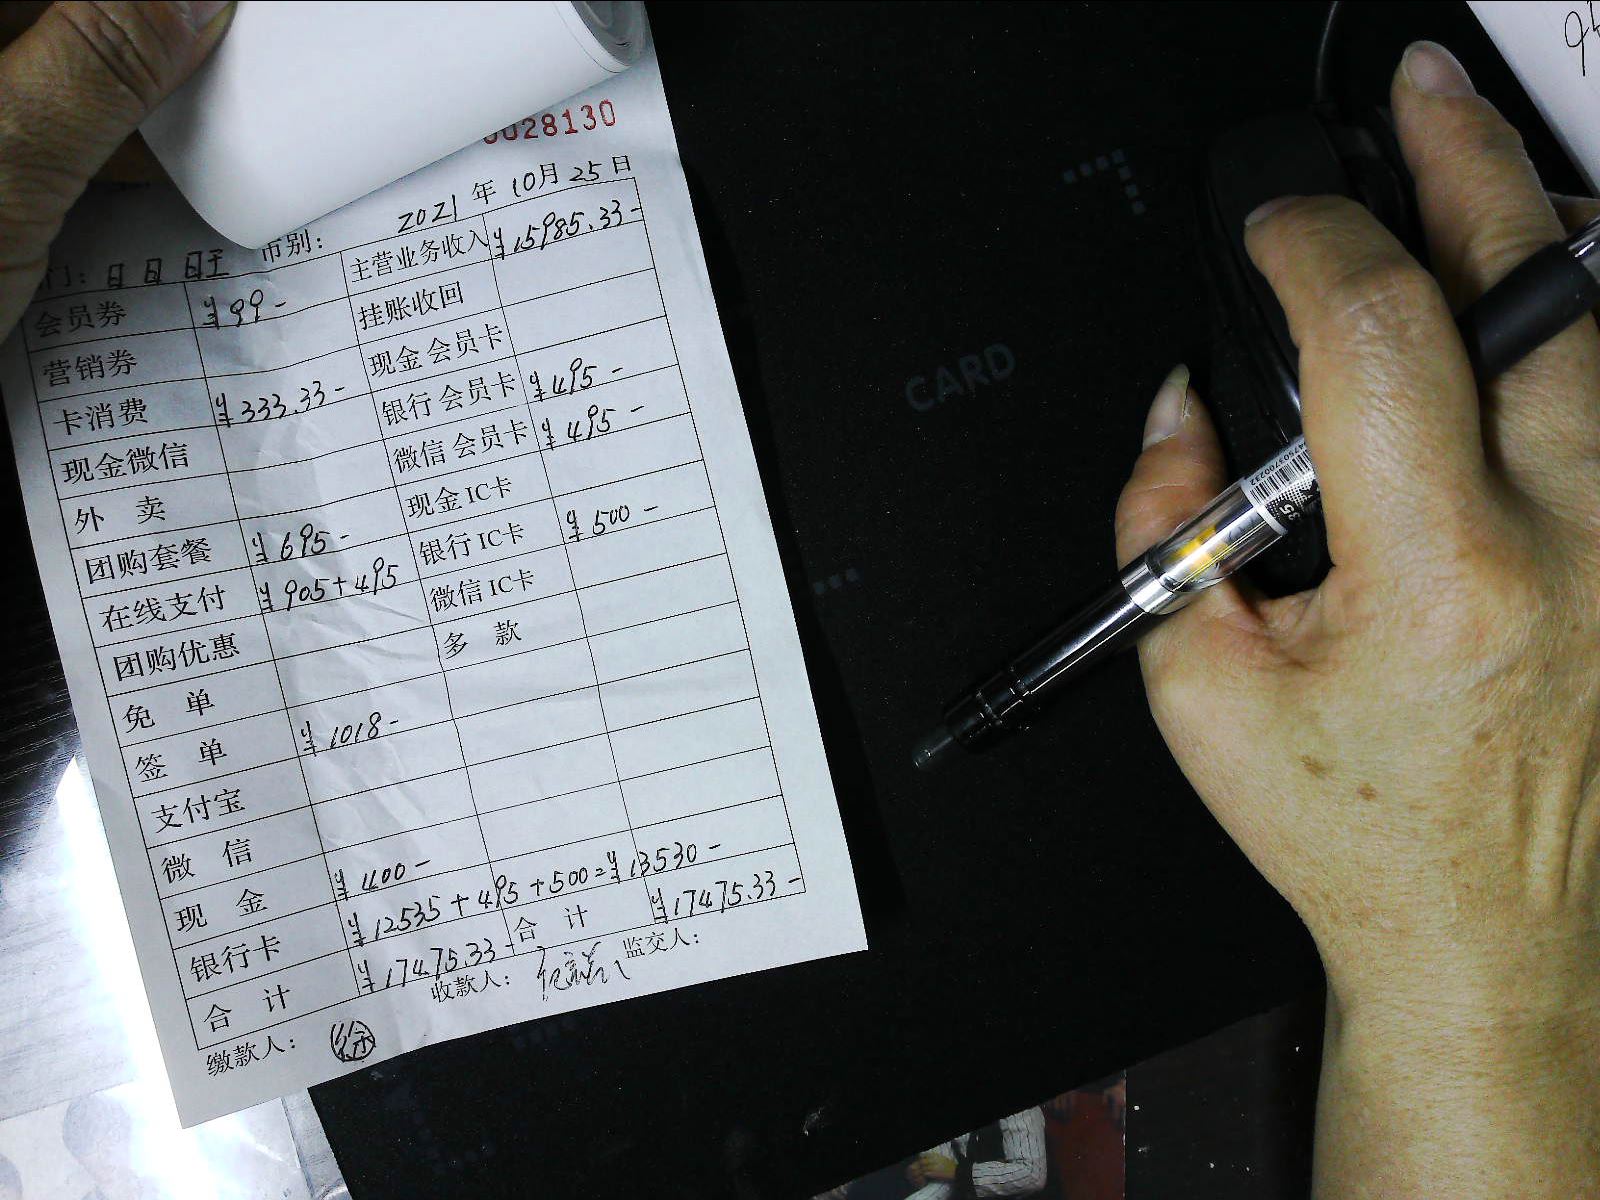 0028130
2021年10月25日
门：日日旺 币别：
会员券 ¥99- 主营业务收入 ¥15985.33-
营销券 挂账收回
卡消费 ¥333.33- 现金会员卡
现金微信 银行会员卡 ¥495-
外 卖 微信会员卡 ¥495-
团购套餐 ¥695- 现金IC卡
在线支付 ¥905+495 银行IC卡 ¥500-
团购优惠 微信IC卡
免 单 多 款
签 单 ¥1018-
支付宝
微 信
现 金 ¥400-
银行卡 ¥12535+495+500=¥13530-
合 计 ¥17475.33- 合 计 ¥17475.33-
缴款人： 徐 收款人： 监交人：
CARD